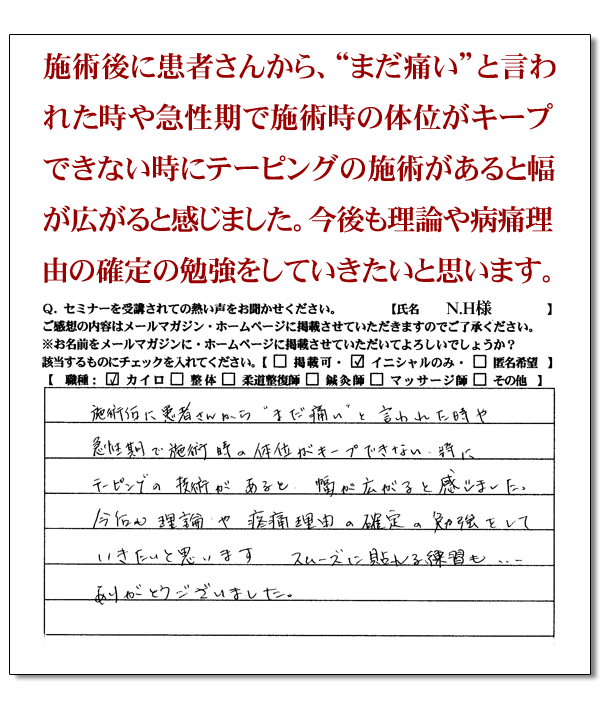 施術後に患者さんから、“まだ痛い”と言わ
れた時や急性期で施術時の体位がキープ
できない時にテーピングの施術があると幅
が広がると感じました。今後も理論や病痛理
由の確定の勉強をしていきたいと思います。
Q. セミナーを受講されての熱い声をお聞かせください。 【氏名 N.H様 】
ご感想の内容はメールマガジン・ホームページに掲載させていただきますのでご了承ください。
※お名前をメールマガジンに・ホームページに掲載させていただいてよろしいでしょうか？
該当するものにチェックを入れてください。【 □ 掲載可・ ☑ イニシャルのみ・ □ 匿名希望 】
【 職種： ☑ カイロ □ 整体 □ 柔道整復師 □ 鍼灸師 □ マッサージ師 □ その他 】
施術后に患者さんから“まだ痛い”と言われた時や
急性期で施術時の体位がキープできない時に
テーピングの技術があると 幅が広がると感じました。
今后も理論や病痛理由の確定の勉強をして
いきたいと思います スムーズに貼れる練習も...
ありがとうございました。